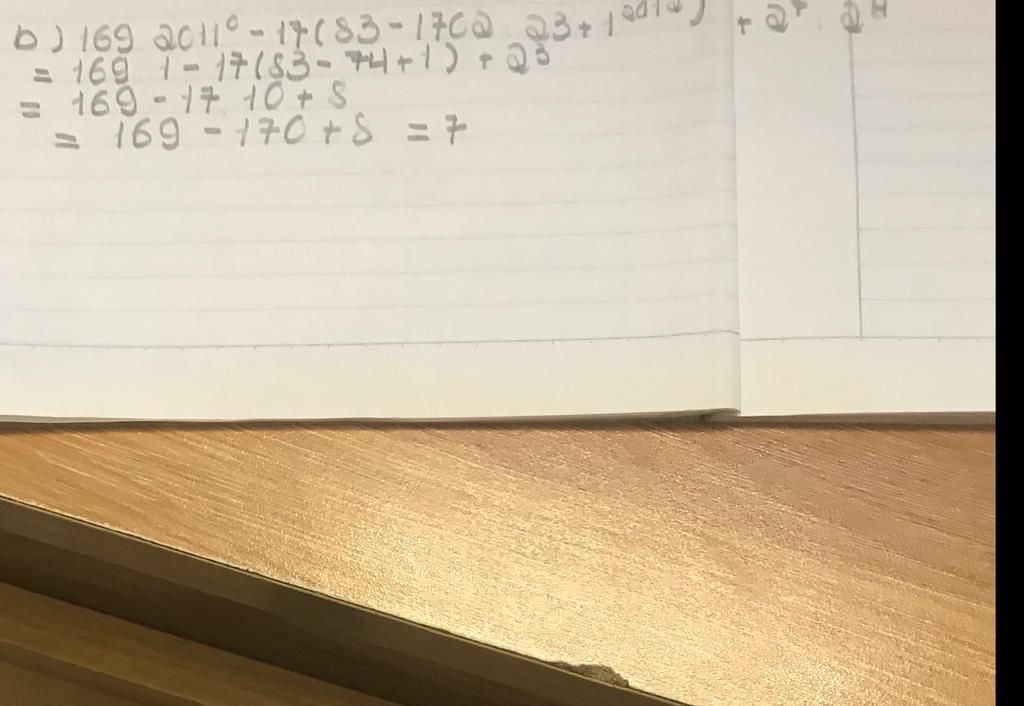 b) 169 2011⁰ - 17(83 - 1702 23 + 1²⁰¹²) + 2⁷ 2⁴
= 169 1 - 17(83 - 74 + 1) + 2³
= 169 - 17 10 + 8
= 169 - 170 + 8 = 7